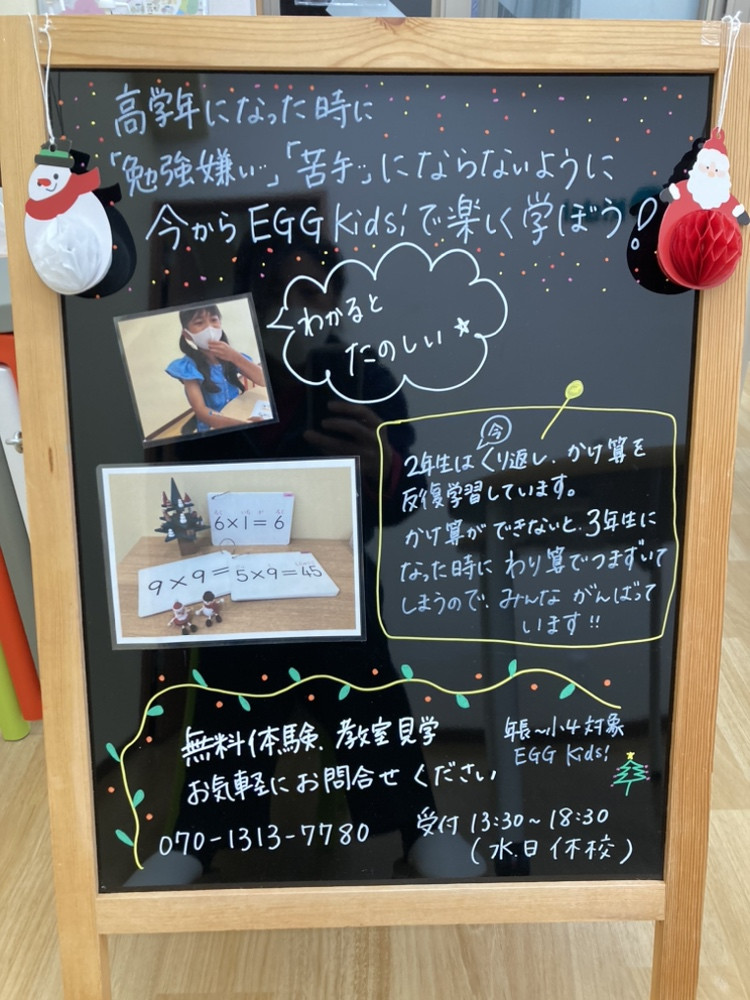 高学年になった時に
「勉強嫌い」「苦手」にならないように
今からEGG Kids!で楽しく学ぼう!
わかると
たのしい☆
6×1=6
9×9=
5×9=45
今
2年生はくり返し、かけ算を
反復学習しています。
かけ算ができないと、3年生に
なった時に わり算でつまずいて
しまうので、みんな がんばって
います!!
無料体験、教室見学
お気軽にお問合せください
070-1313-7780
年長~小4対象
EGG Kids!
受付 13:30~18:30
(水.日 休校)